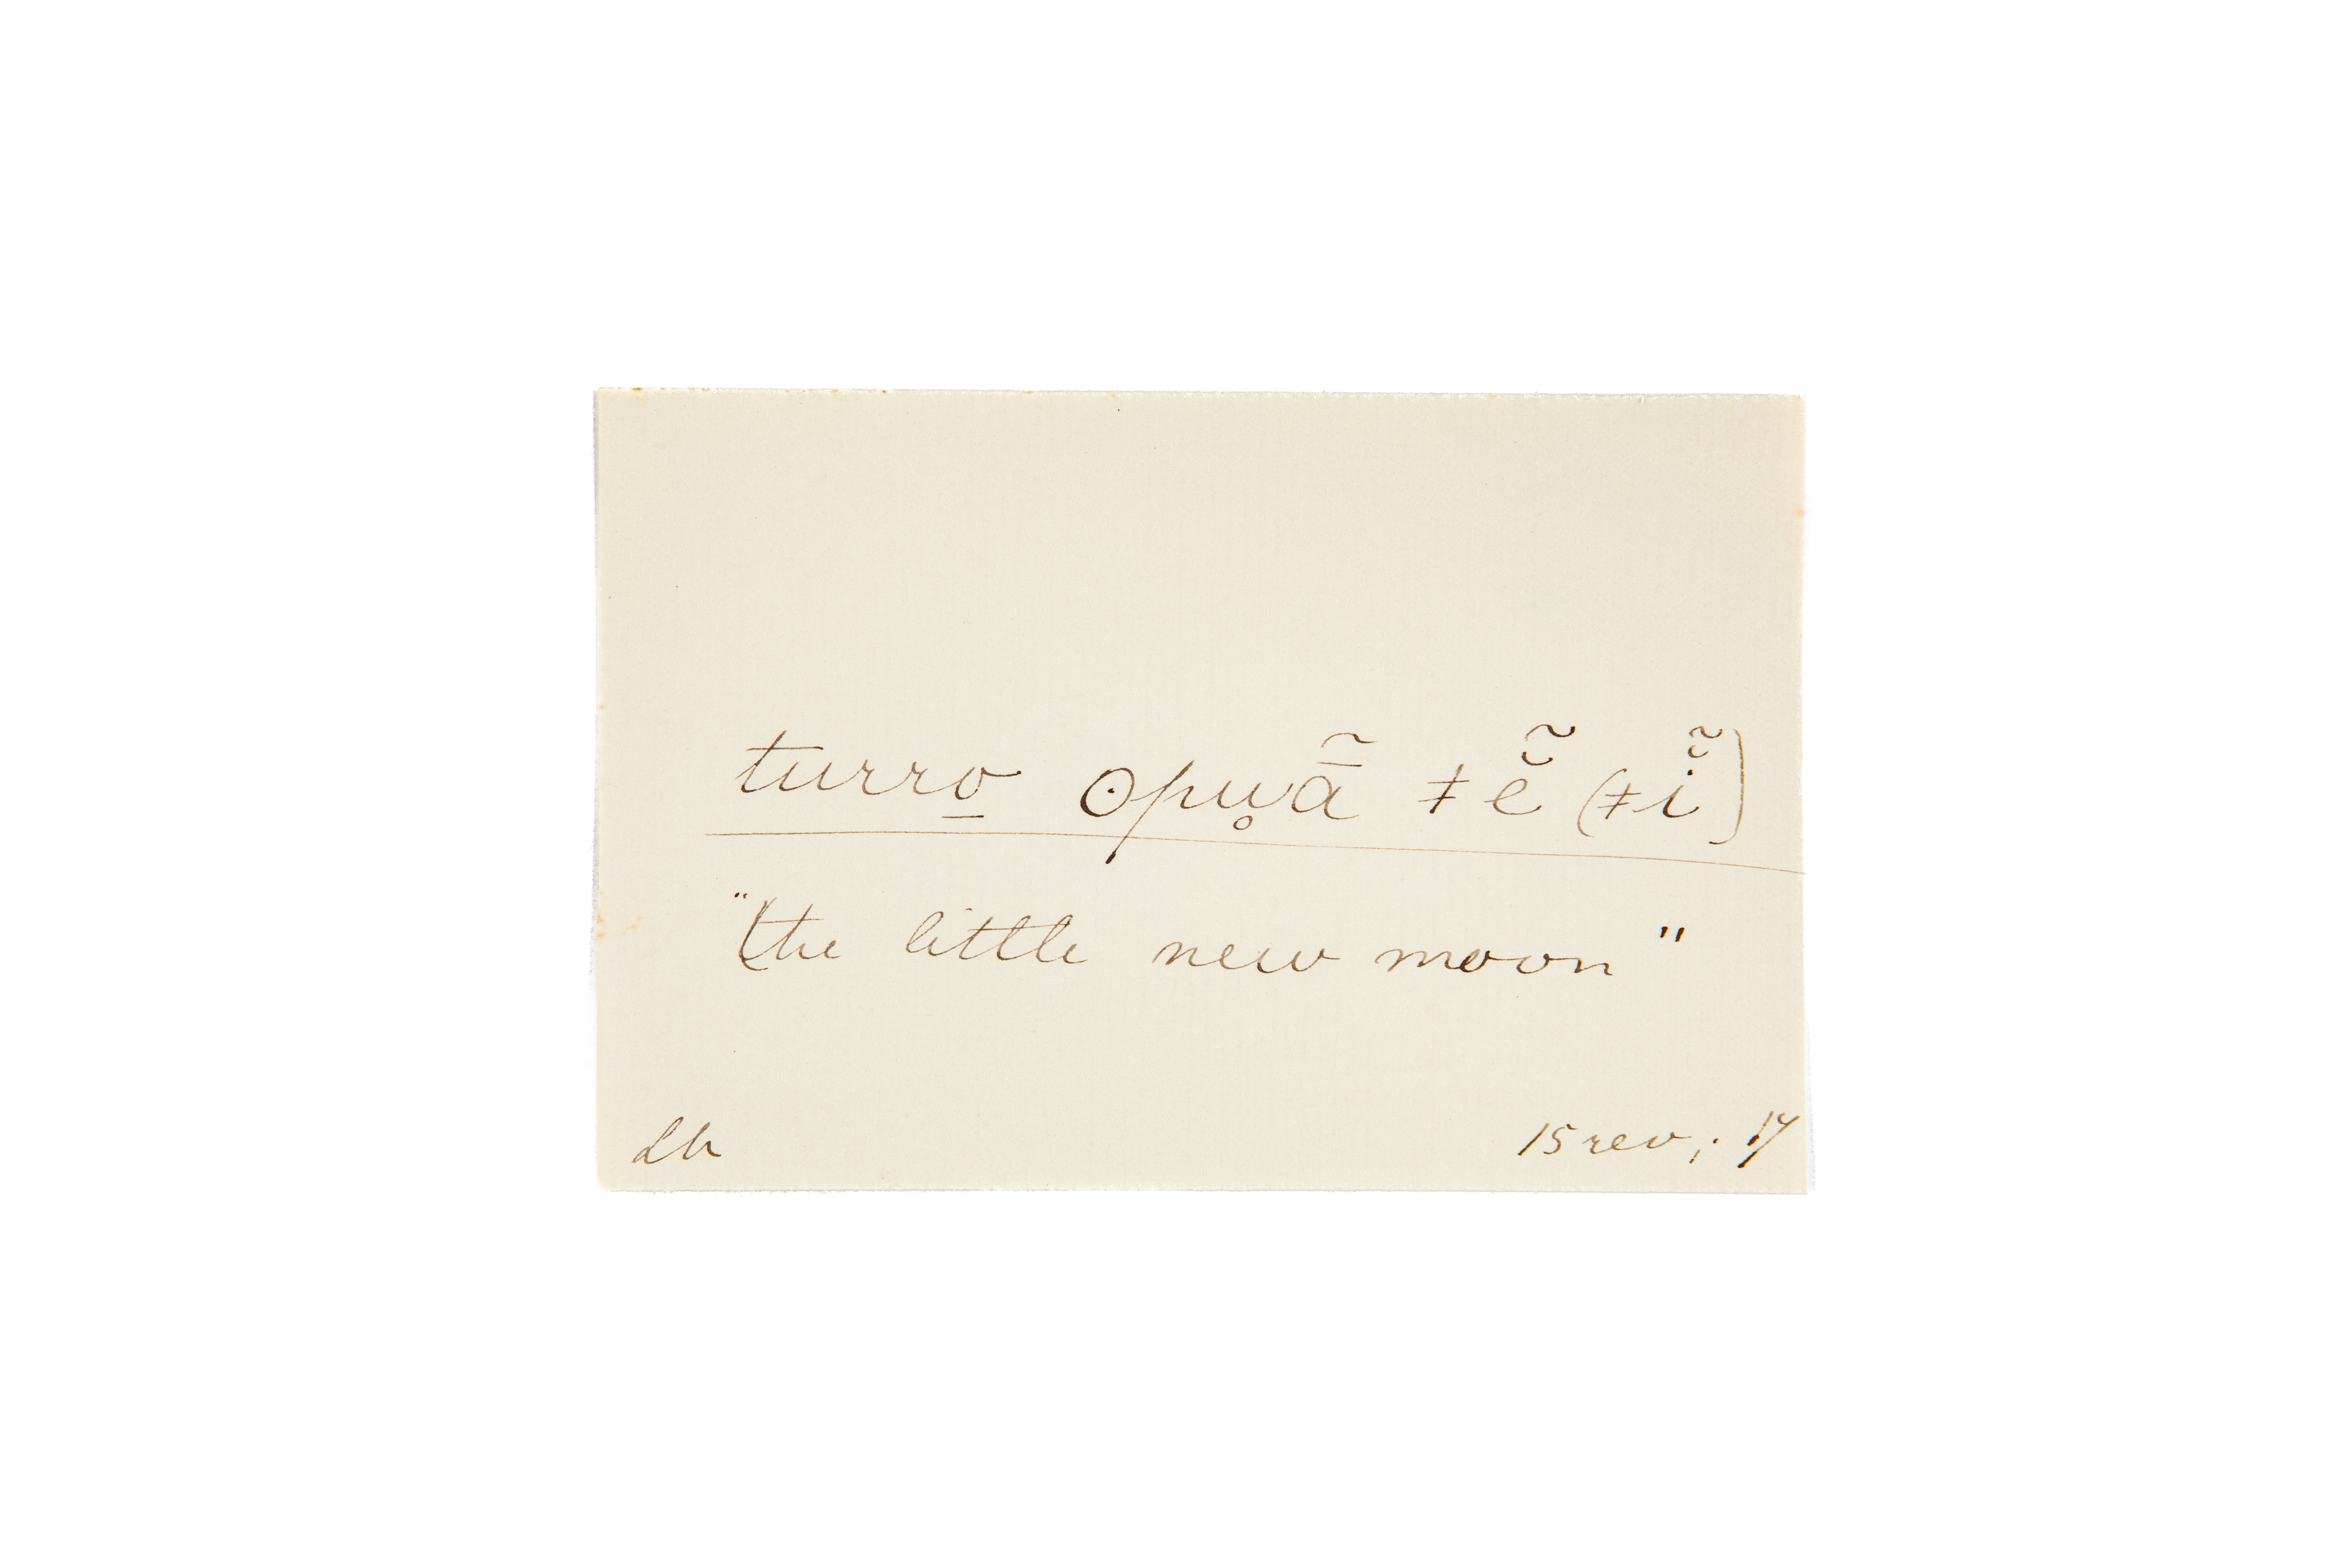 turro̱ ʘpu̥ā̃ ǂĕ̃ (ǂĭ̃)
"the little new moon"
Lb 15 rev; 17